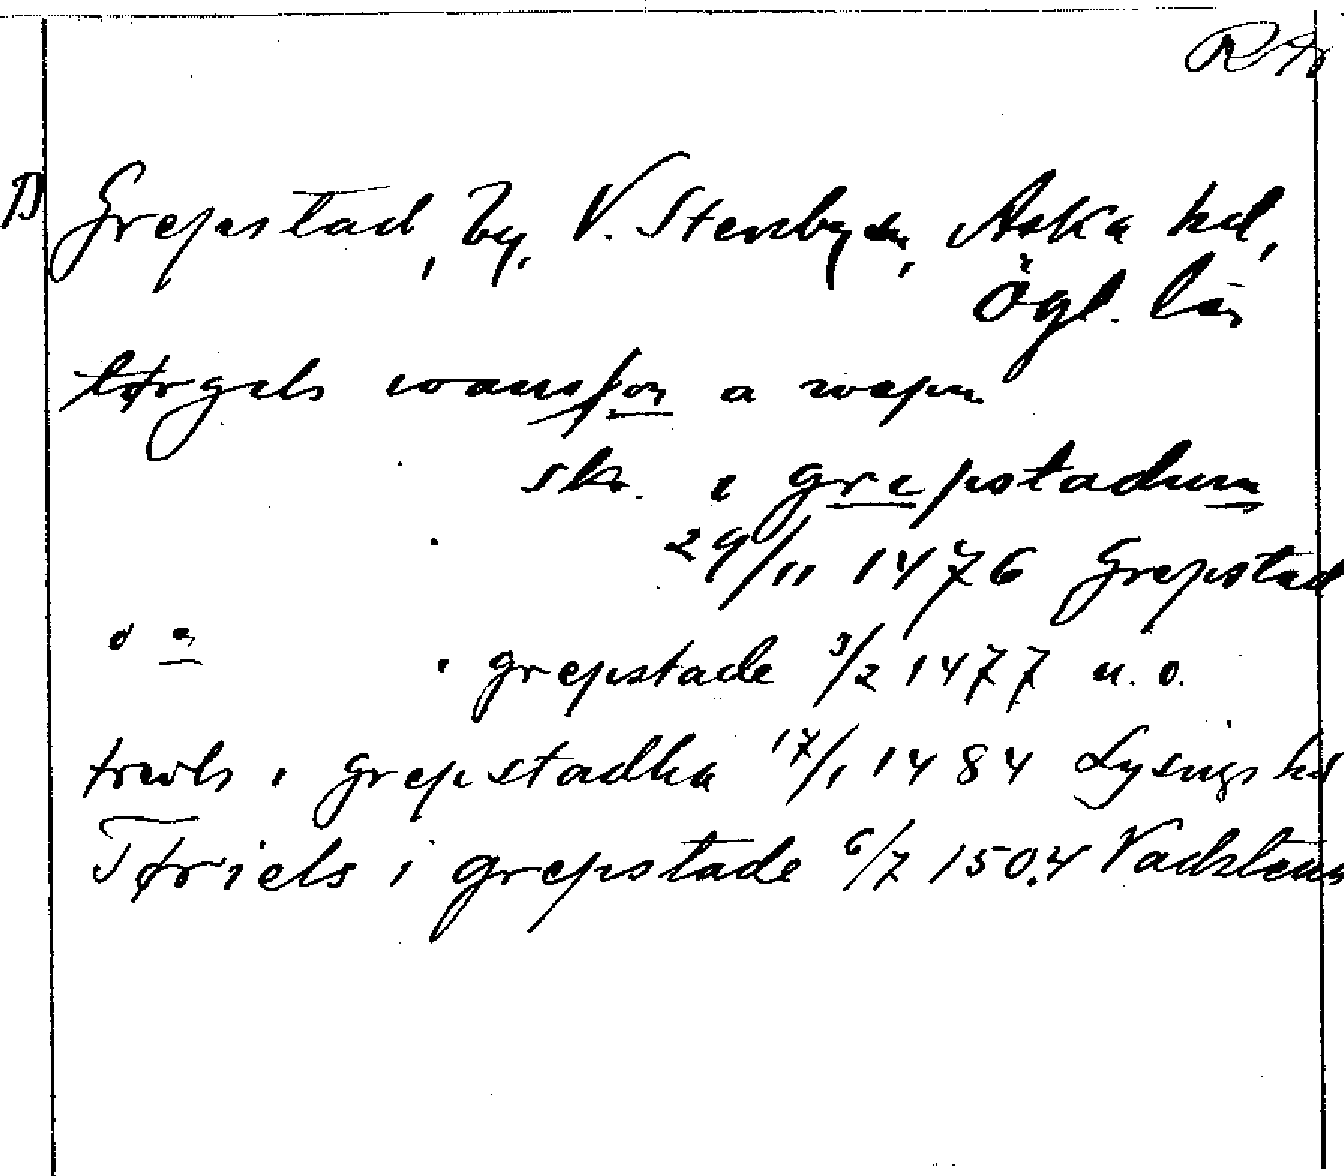 Grepstad, by, V. Stenby sn, Aska hd,
Ögl. län
tørgels wansson a wapn
sk. i grepstadum
29/11 1476 Grepstad
i grepstade 3/2 1477 u. o.
i grepstadha 17/1 1484 Lysings hd
Tøriels i grepstade 6/7 1504 Vadstena